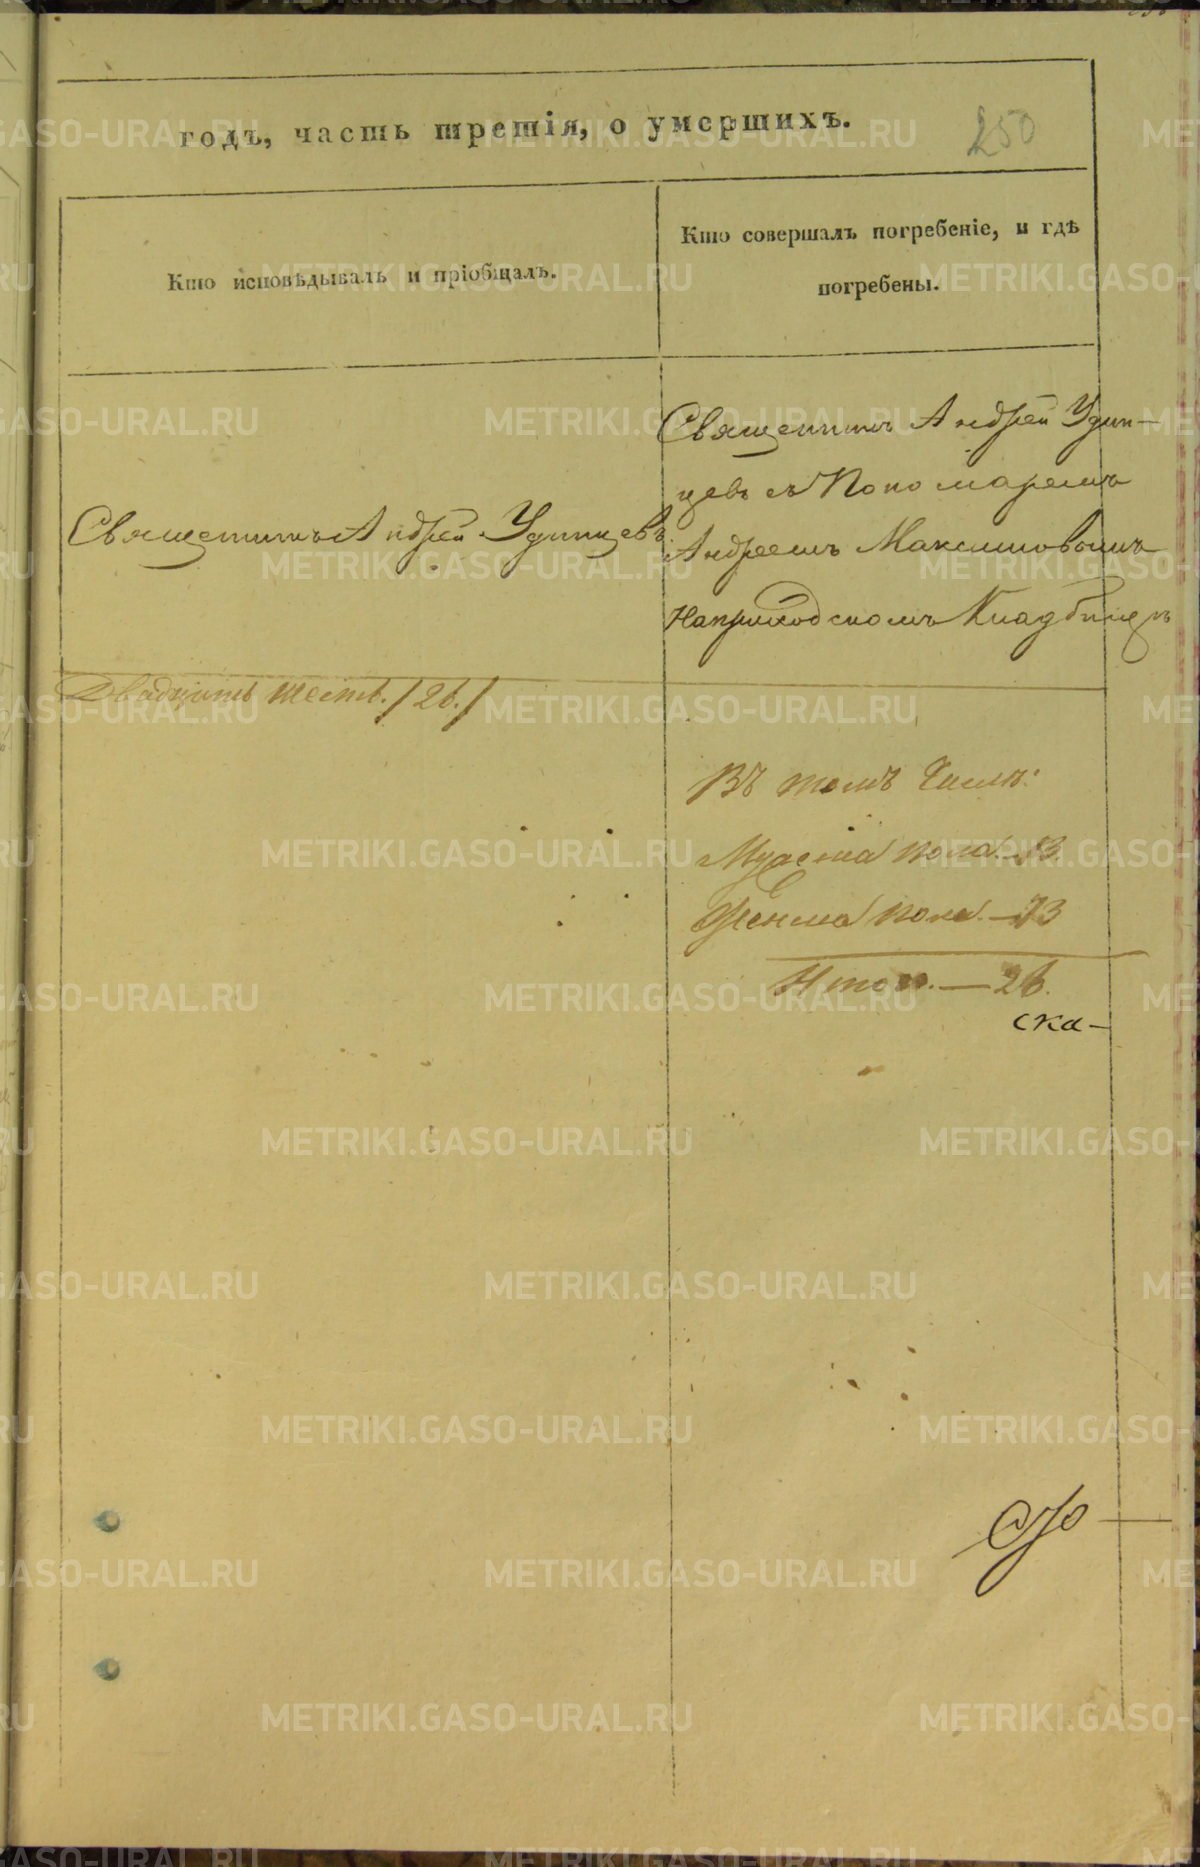 годъ, часть третія, о умершихъ.
250
Кто исповѣдывалъ и пріобщалъ.
Кто совершалъ погребеніе, и гдѣ
погребены.
Священникъ Андрей Удин-
цевъ съ Пономаремъ
Священникъ Андрей Удинцевъ
Андреемъ Максимовымъ
На приходскомъ Кладбищѣ
Двадцать шесть. /26./
Въ томъ Числѣ:
Мужеска пола. – 13.
Женска пола. – 13
Итого. – 26.
ска-
METRIKI.GASO-URAL.RU